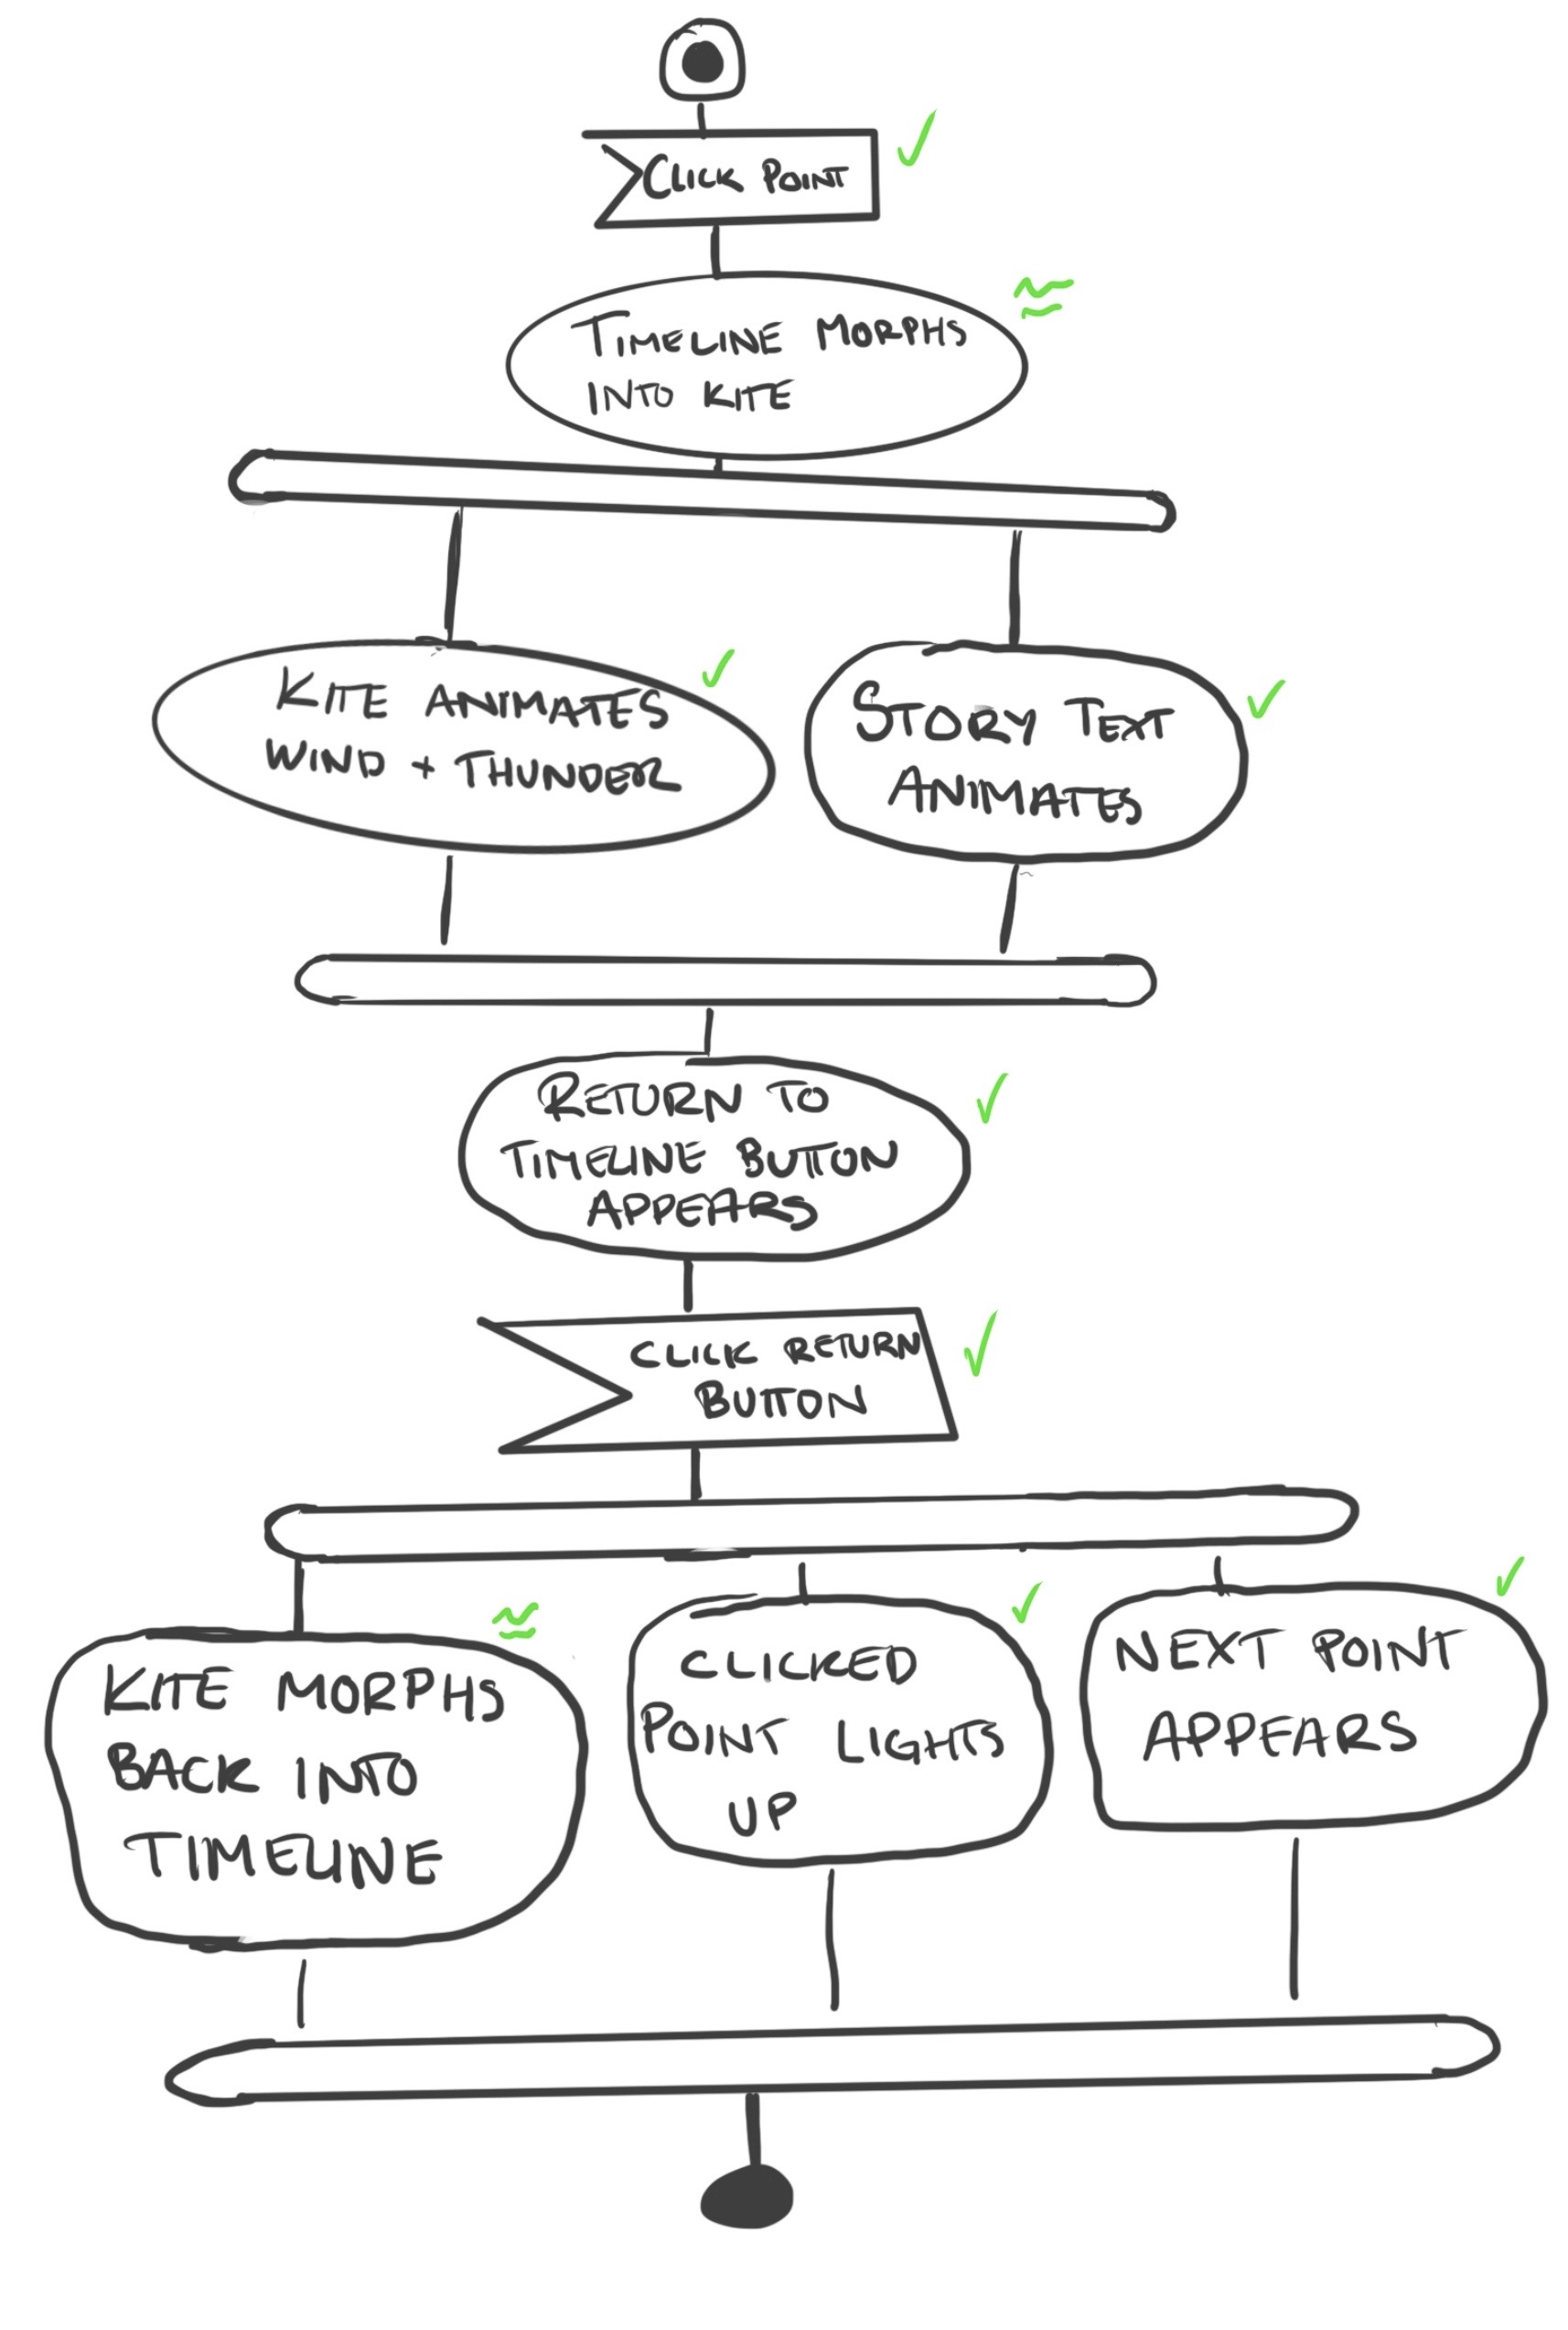 CLICK POINT
TIMELINE MORPHS
INTO KITE
KITE ANIMATES
WIND + THUNDER
STORY TEXT
ANIMATES
RETURN TO
TIMELINE BUTTON
APPEARS
CLICK RETURN
BUTTON
KITE MORPHS
BACK INTO
TIMELINE
CLICKED
POINT LIGHTS
UP
NEXT POINT
APPEARS